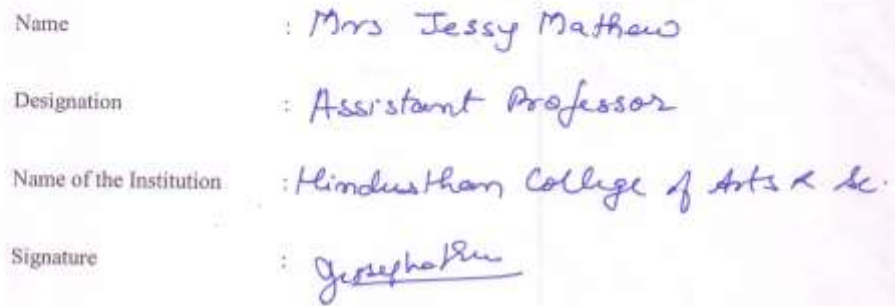 Name : Mrs Jessy Mathew
Designation : Assistant Professor
Name of the Institution : Hindusthan College of Arts & Sc.
Signature :